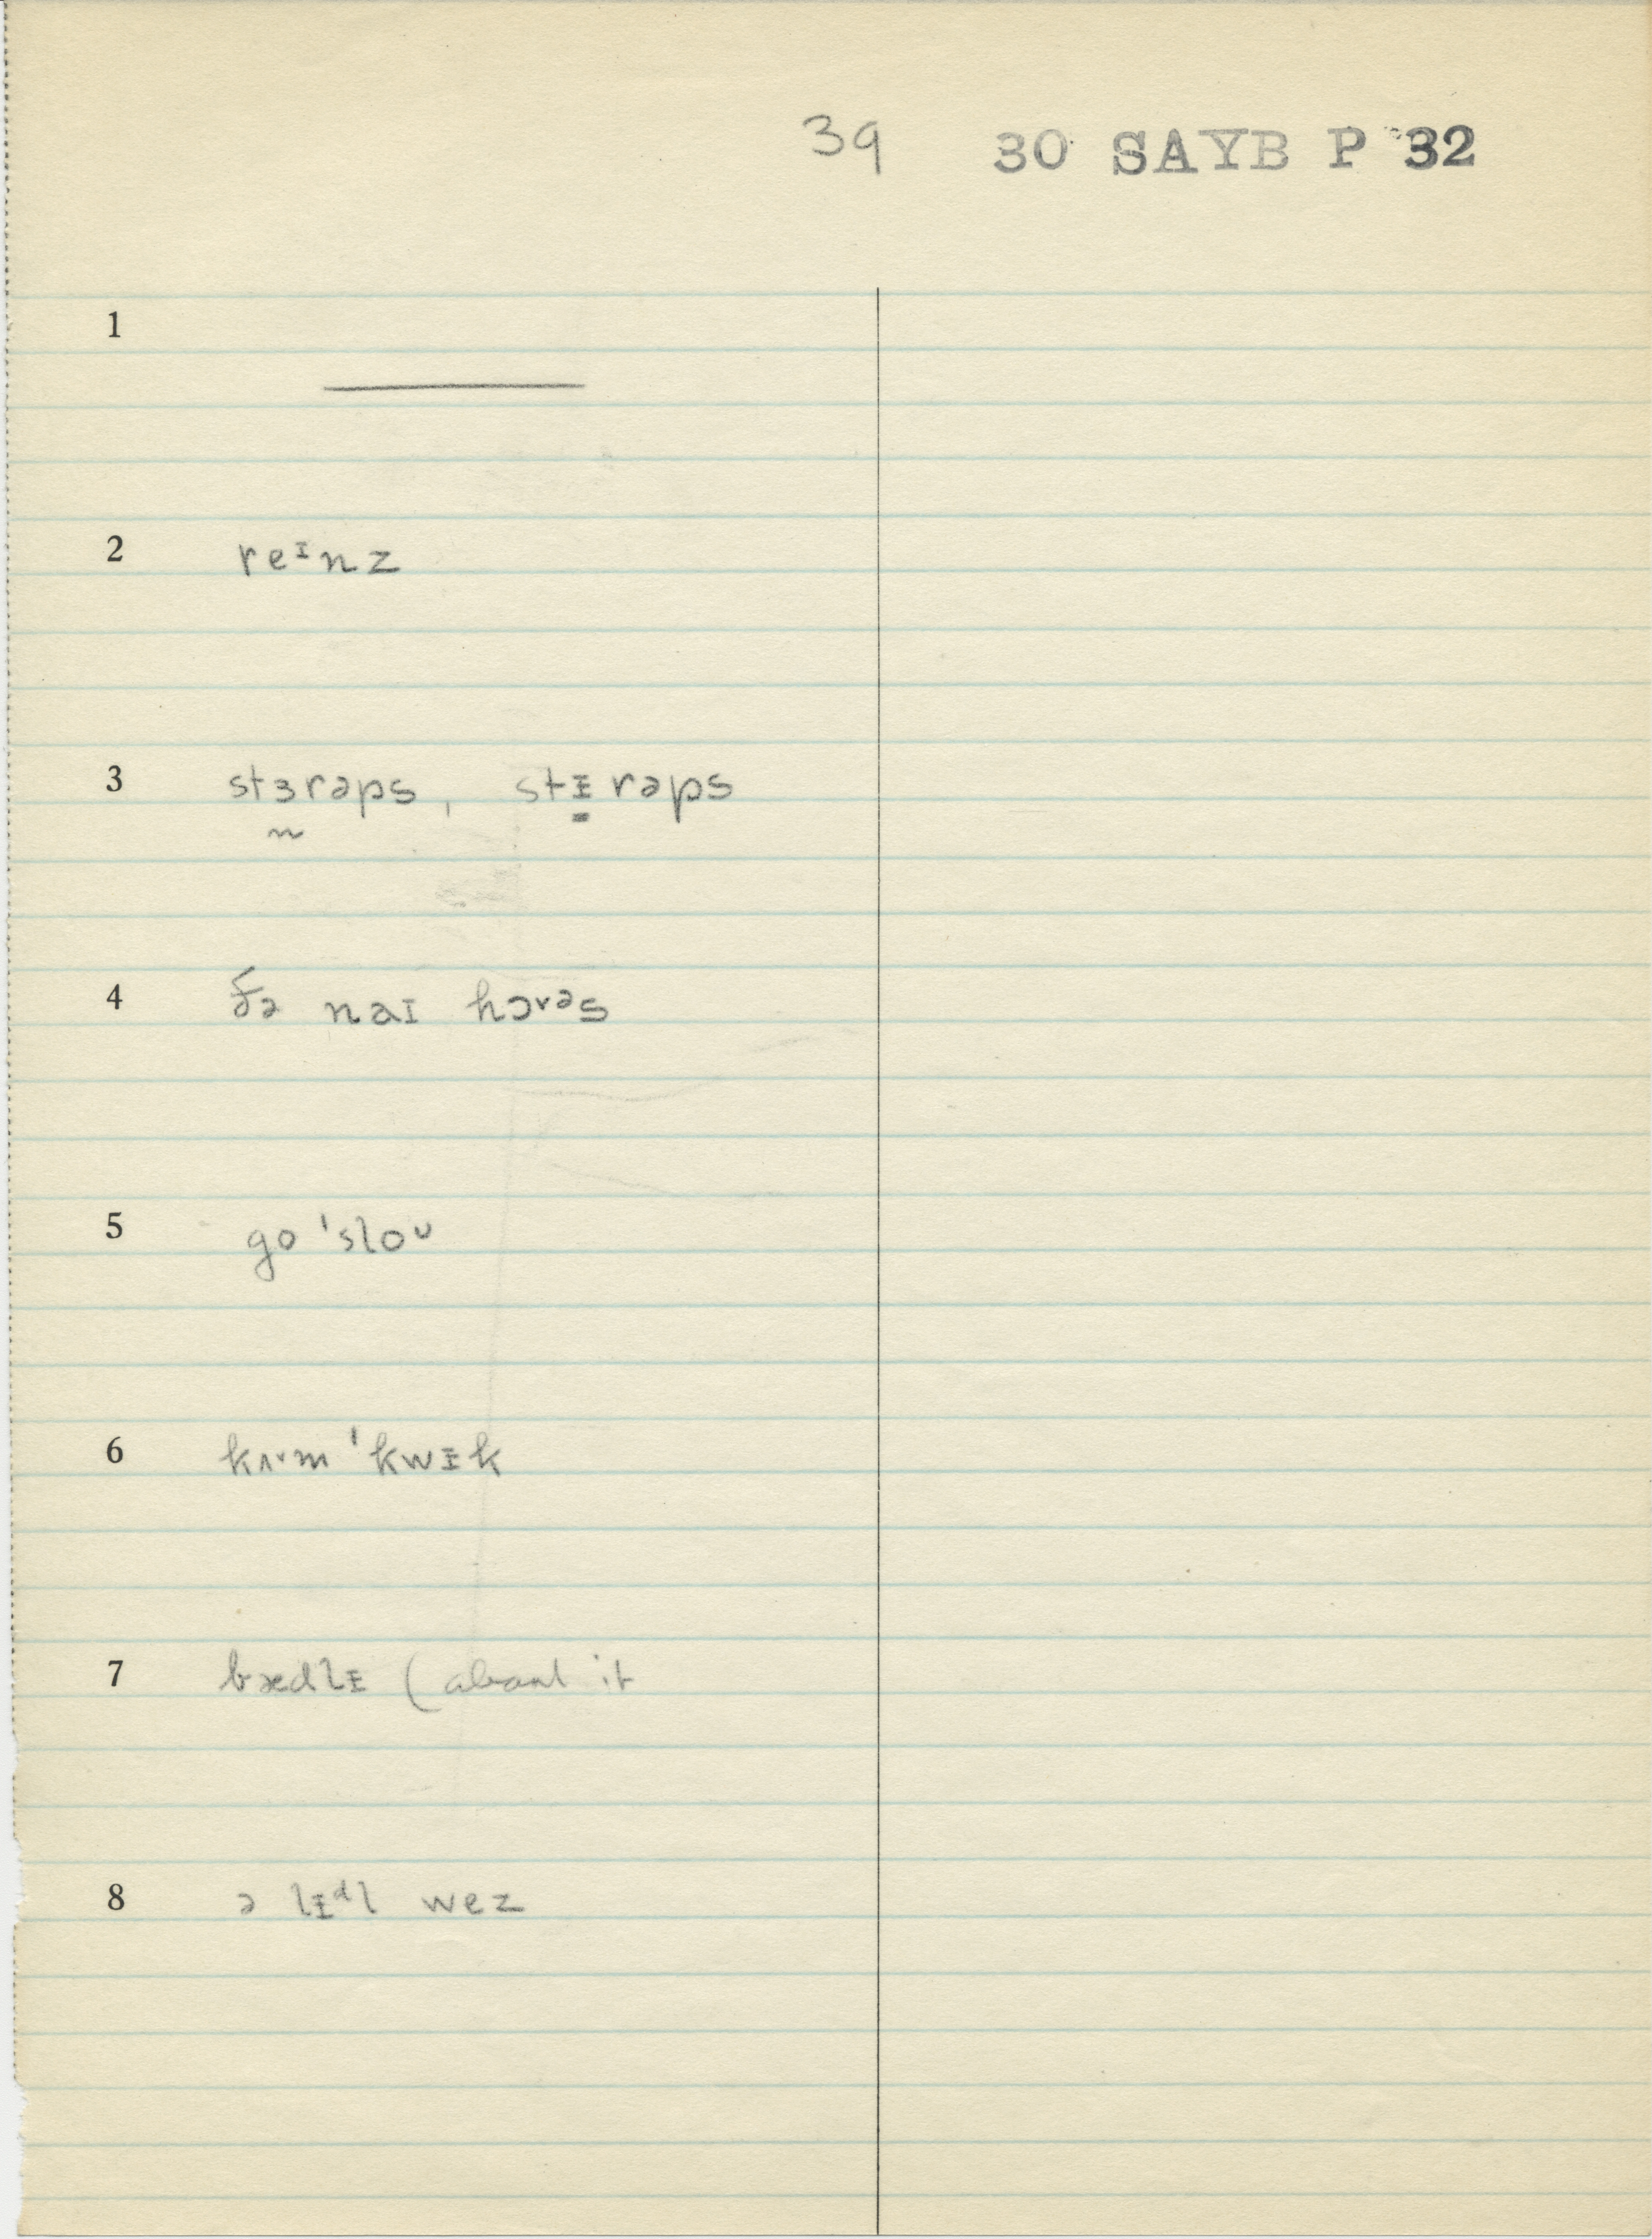 39 30 SAYB P 32
1 ———
2 reᶦnz
3 stɜrəps, stɪrəps
4 ðə naɪ hɔˑəs
5 go ˈsloᴜ
6 kʌˑm ˈkwɪk
7 bædlɪ (about it
8 ə lɪᵈl wez